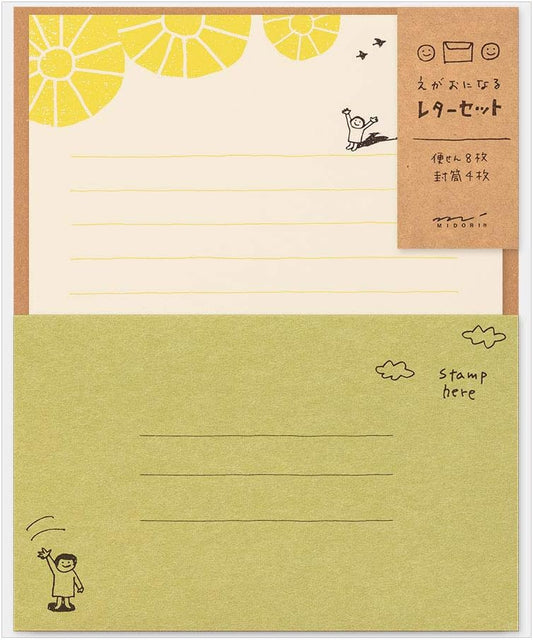 えがおになる
レターセット
便せん8枚
封筒4枚
MIDORI
stamp
here